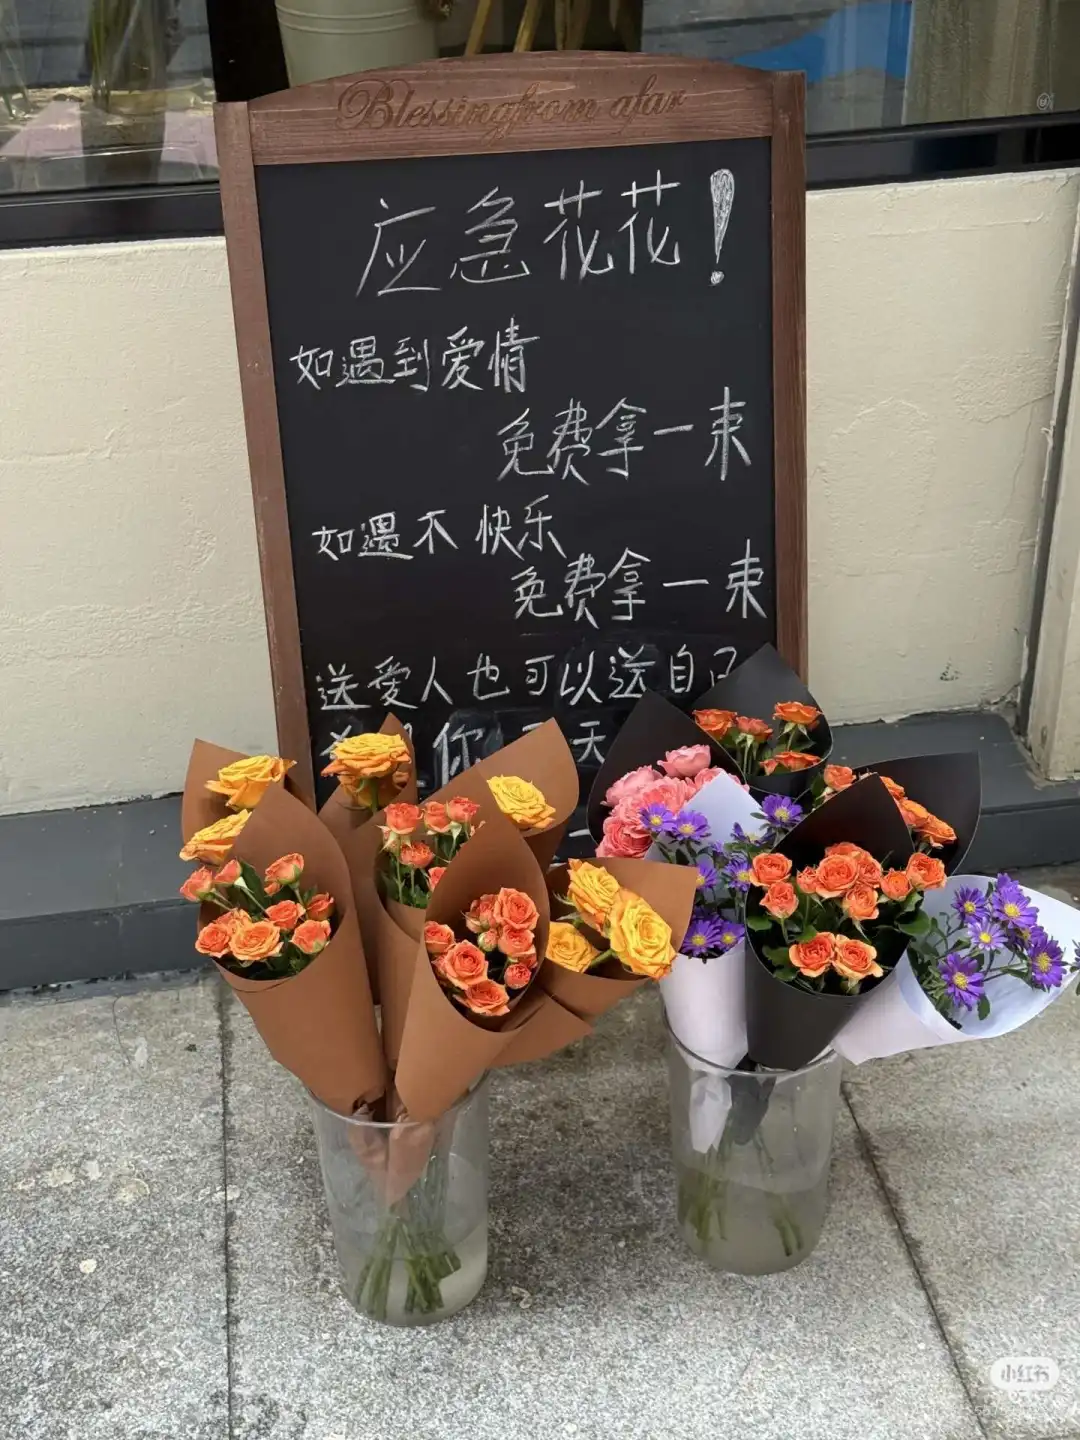 Blessing from afar
应急花花!
如遇到爱情
免费拿一束
如遇不快乐
免费拿一束
送爱人也可以送自己
你 天
小红书